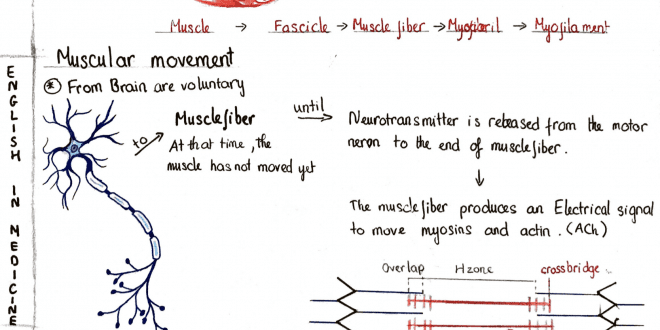 Muscle → Fascicle → Muscle fiber → Myofibril → Myofilament
Muscular movement
* From Brain are voluntary
ENGLISH IN MEDICINE
to → Muscle fiber until →
At that time, the
muscle has not moved yet
Neurotransmitter is released from the motor
neron to the end of muscle fiber.
↓
The muscle fiber produces an Electrical signal
to move myosins and actin. (ACh)
Overlap H zone crossbridge